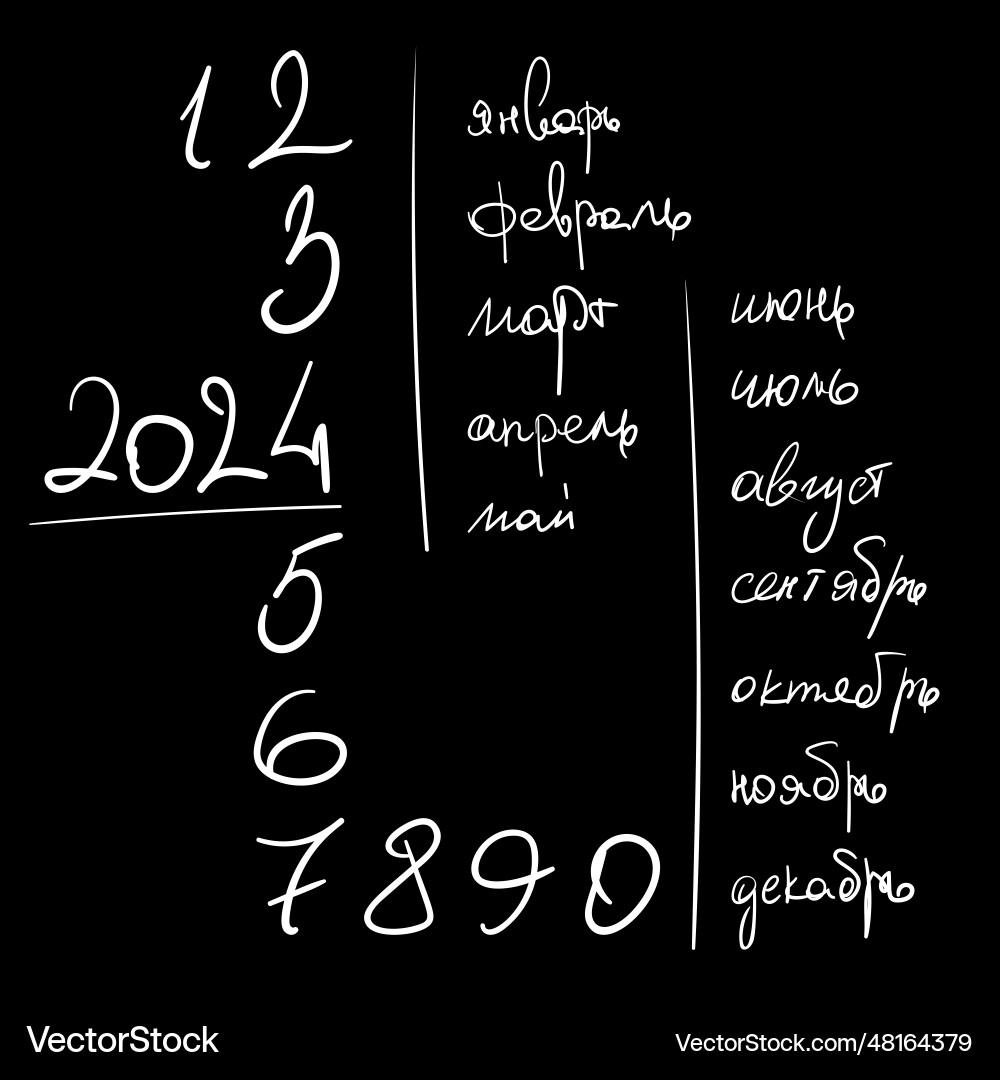 1 2
3
2024
5
6
7 8 9 0
январь
февраль
март
апрель
май
июнь
июль
август
сентябрь
октябрь
ноябрь
декабрь
VectorStock
VectorStock.com/48164379